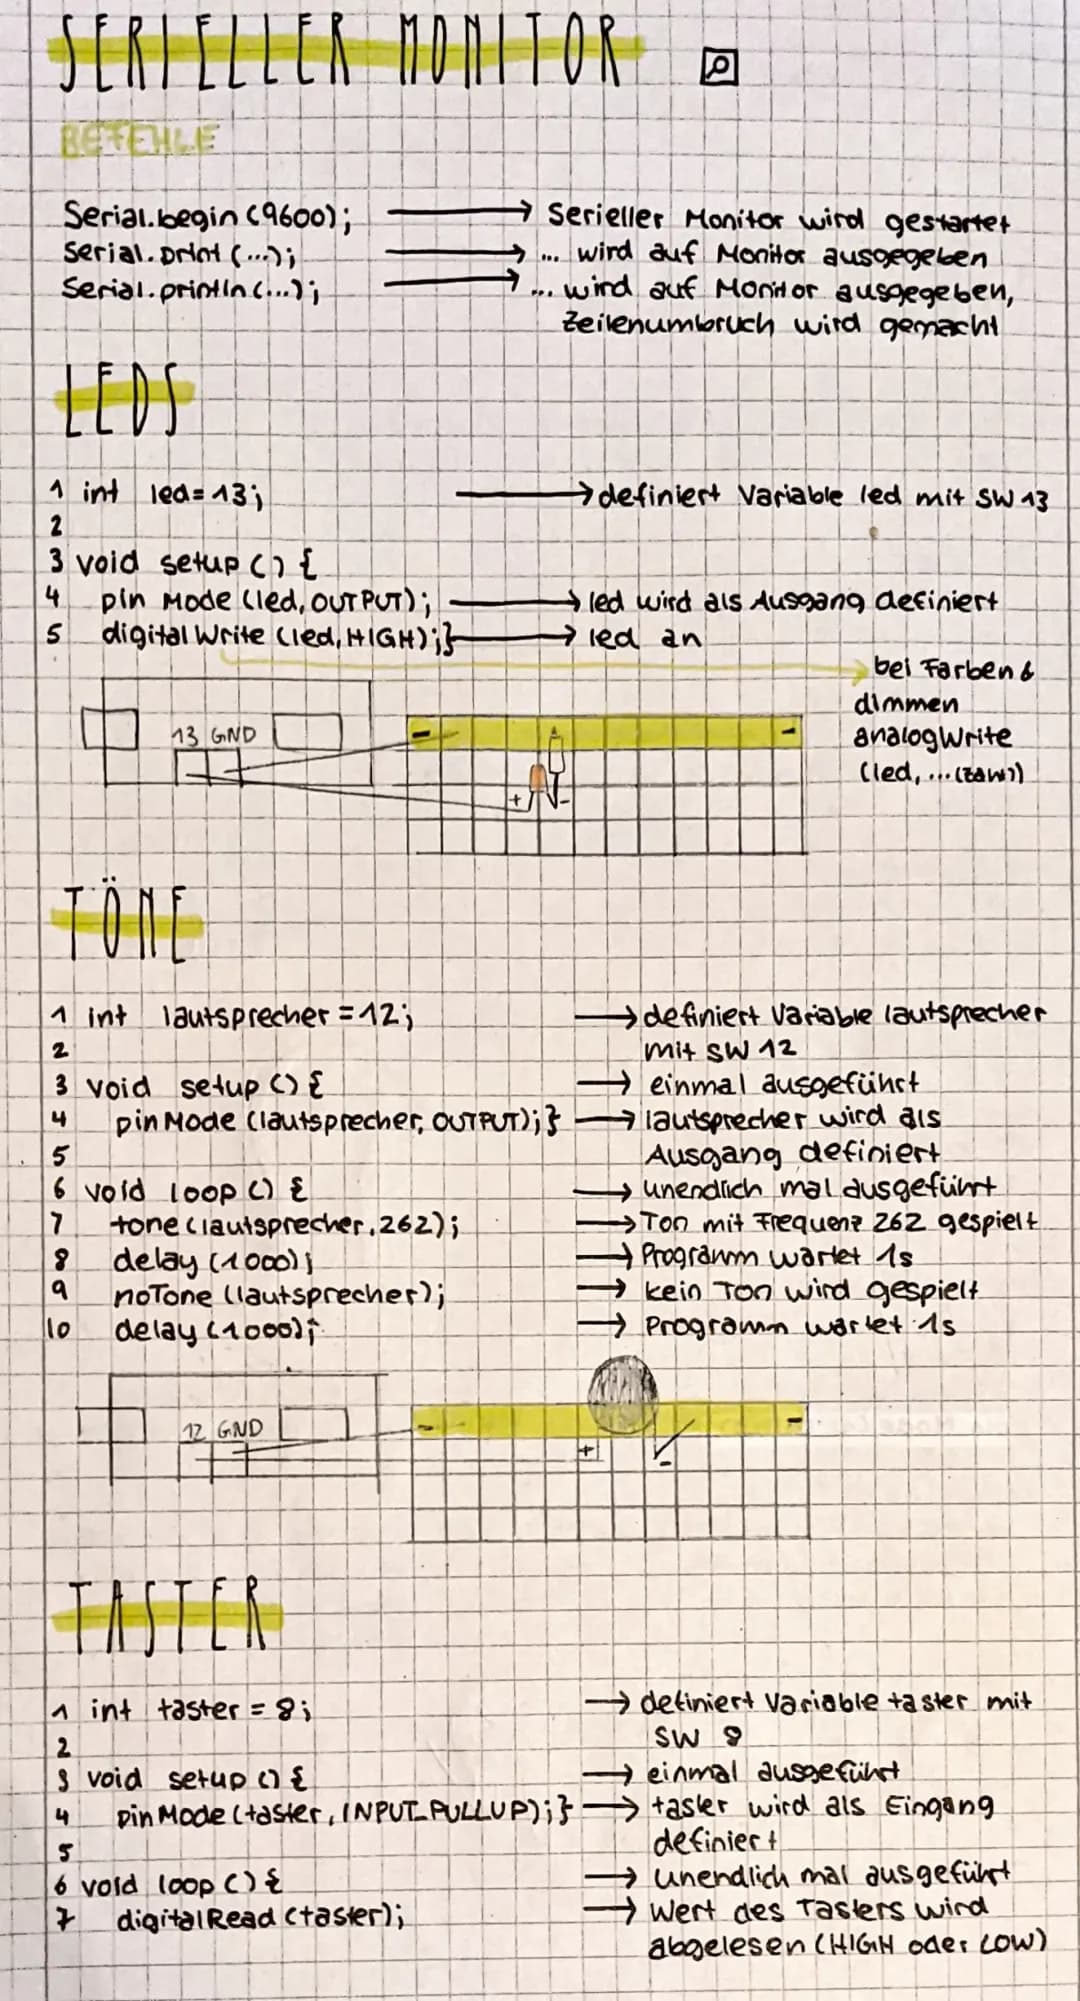 SERIELLER MONITOR
BEFEHLE
Serial.begin (9600); → Serieller Monitor wird gestartet
Serial.print (...); → ... wird auf Monitor ausgegeben
Serial.println (...); → ... wird auf Monitor ausgegeben,
Zeilenumbruch wird gemacht
LEDS
1 int led=13; → definiert Variable led mit SW 13
2
3 void setup () {
4 pin Mode (led, OUTPUT); → led wird als Ausgang definiert
5 digital Write (led, HIGH);} → led an
bei Farben &
dimmen
analogWrite
(led, ... (Zahl))
13 GND
- -
+ -
TÖNE
1 int lautsprecher = 12; → definiert Variable lautsprecher
2 mit SW 12
3 void setup () { → einmal ausgeführt
4 pin Mode (lautsprecher, OUTPUT);} → lautsprecher wird als
5 Ausgang definiert
6 void loop () { → unendlich mal ausgeführt
7 tone (lautsprecher, 262); → Ton mit Frequenz 262 gespielt
8 delay (1000); → Programm wartet 1s
9 noTone (lautsprecher); → kein Ton wird gespielt
10 delay (1000); → Programm wartet 1s
12 GND
- -
+ -
TASTER
1 int taster = 8; → definiert Variable taster mit
2 SW 8
3 void setup () { → einmal ausgeführt
4 pin Mode (taster, INPUT_PULLUP);} → taster wird als Eingang
5 definiert
6 void loop () { → unendlich mal ausgeführt
7 digitalRead (taster); → Wert des Tasters wird
abgelesen (HIGH oder LOW)